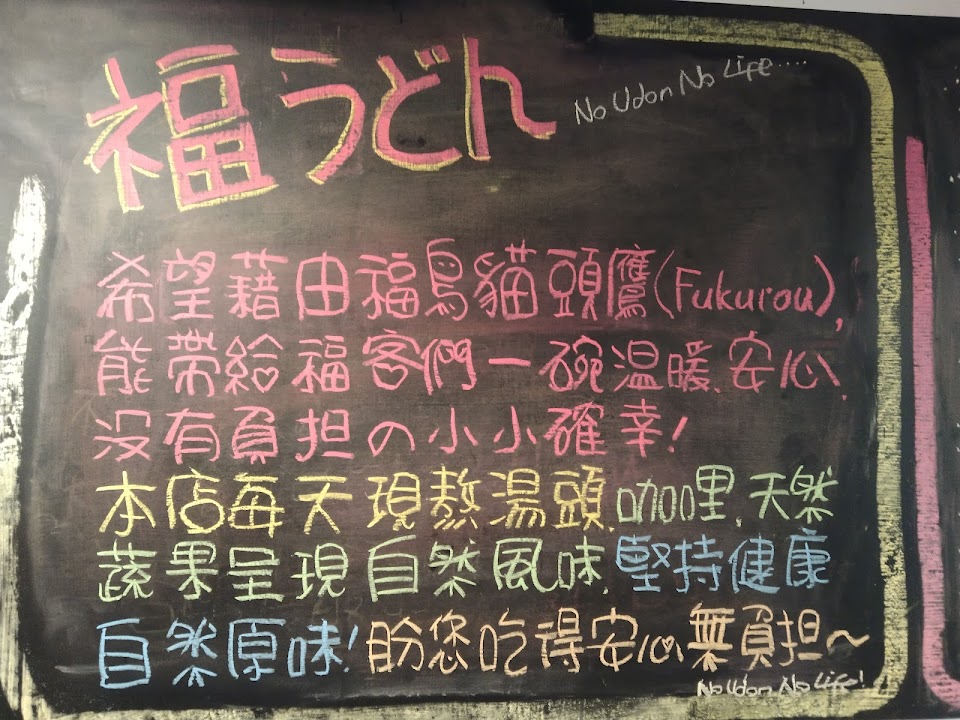 福うどん
No Udon No Life....
希望藉由福鳥貓頭鷹(Fukurou),
能帶給福客們一碗溫暖、安心、
沒有負担の小小確幸!
本店每天現熬湯頭、咖哩、天然
蔬果呈現自然風味、堅持健康
自然原味!盼您吃得安心、無負担~
No Udon No Life!